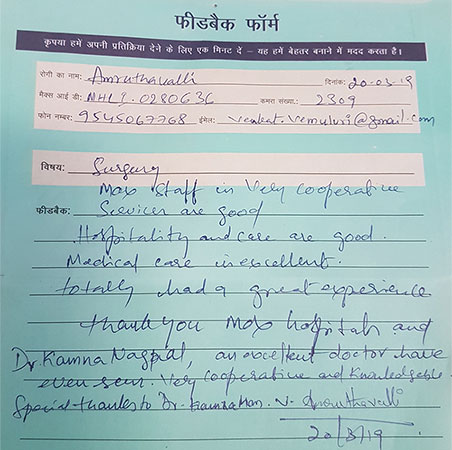 फीडबैक फॉर्म
कृपया हमें अपनी प्रतिक्रिया देने के लिए एक मिनट दें – यह हमें बेहतर बनाने में मदद करता है।
रोगी का नाम: Amruthavalli दिनांक: 20-03-19
मैक्स आई डी: MHL1.0280636 कमरा संख्या.: 2309
फोन नम्बर: 9545067768 ईमेल: venkat.vemuluri@gmail.com
विषय: Surgery
Max staff in very cooperative
फीडबैक: Services are good
Hospitality and care are good.
Medical care in excellent.
totally had a great experience
thank you Max hospitals and
Dr. Kamna Nagpal, an excellent doctor have
ever seen. Very cooperative and Knowledgable
Special thanks to Dr. Kamna Mam. V. Amruthavalli
20/3/19